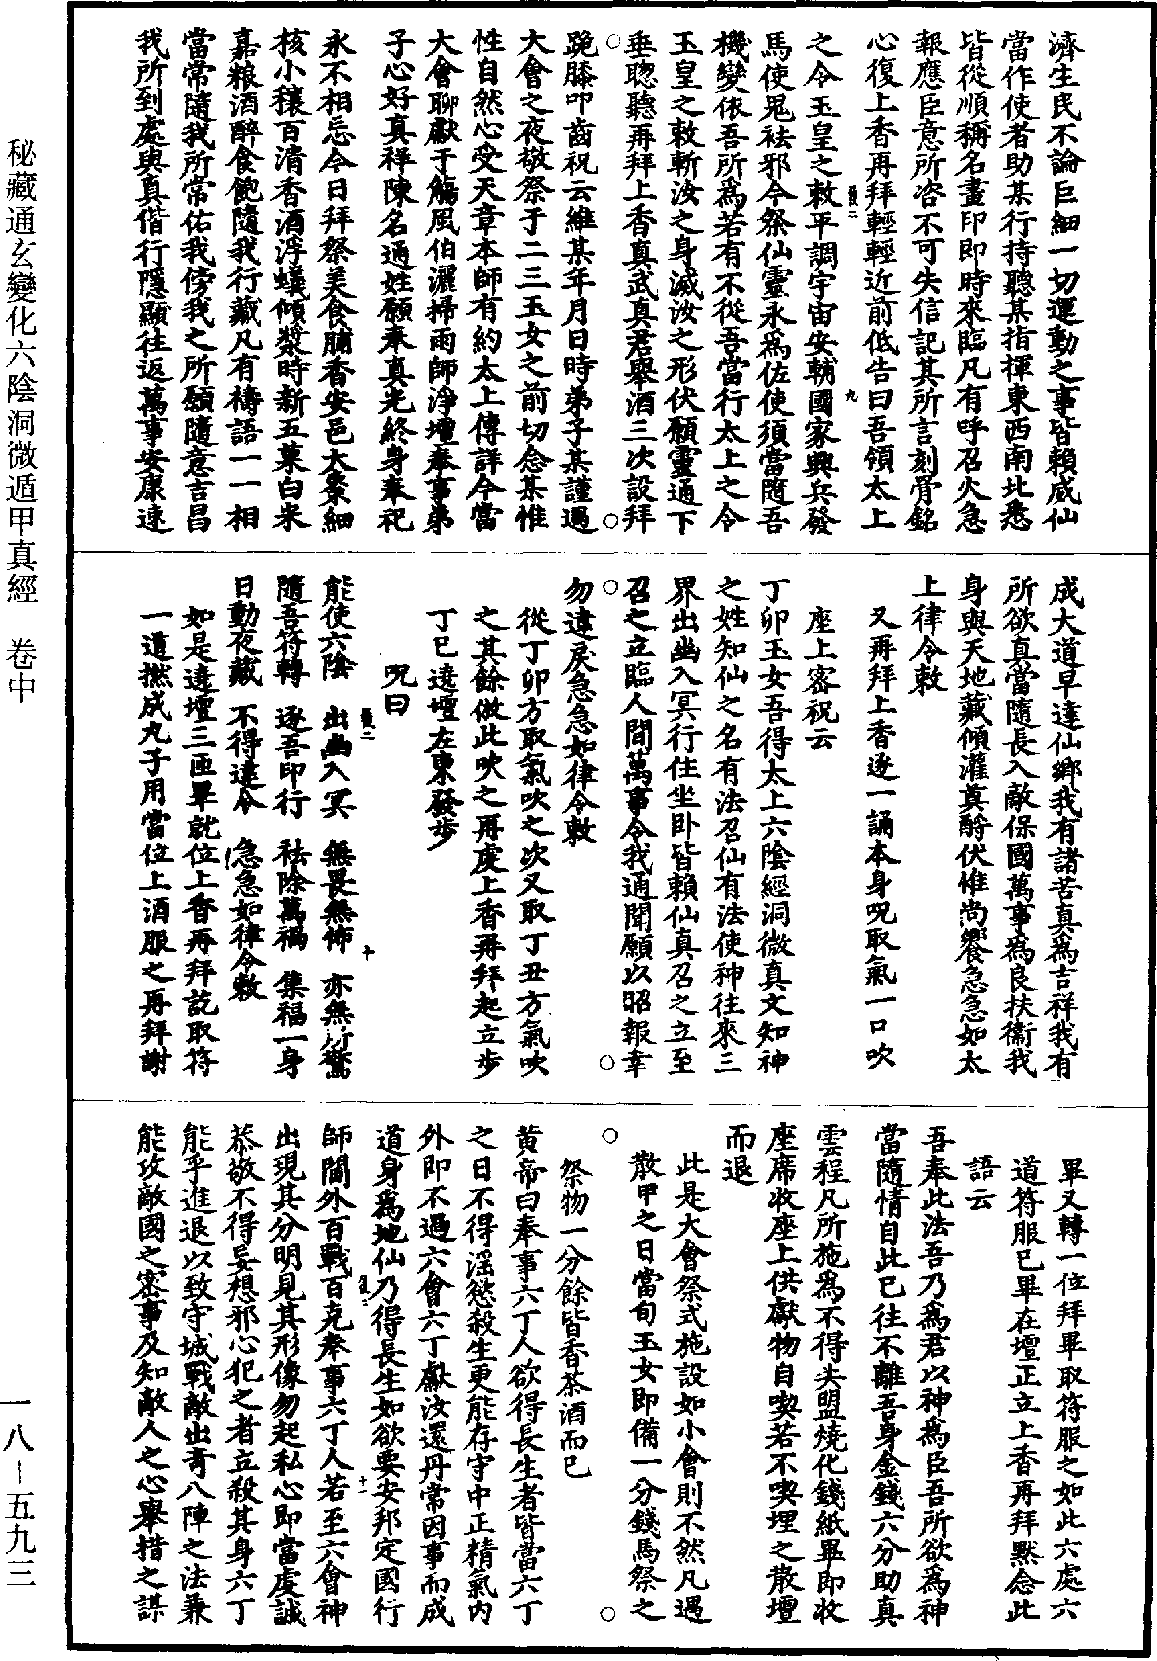 濟生民不論巨細一切運動之事皆賴威仙
當作使者助某行持聽某指揮東西南北悉
皆從順稱名畫印即時來臨凡有呼召火急
報應臣意所咨不可失信記其所言刻骨銘
心復上香再拜輕輕近前低告曰吾領太上
之令玉皇之敕平調宇宙安輔國家興兵發
馬使鬼袪邪今祭仙靈永為佐使須當隨吾
機變依吾所為若有不從吾當行太上之令
玉皇之敕斬汝之身滅汝之形伏願靈通下
垂聦聽再拜上香真武真君舉酒三次設拜
跪膝叩齒祝云維某年月日時弟子某謹遇
大會之夜敬祭于二三玉女之前切念某惟
性自然心受天章本師有約太上傳詳今當
大會聊獻于觴風伯灑掃雨師淨壇奉事弟
子心好真祥陳名通姓願奉真光終身奉祀
永不相忘今日拜祭美食脯香安邑大棗細
核小穰百清香酒浮蟻傾漿時新五菓白米
嘉粮酒醉食飽隨我行藏凡有禱語一一相
當常隨我所常佑我傍我之所願隨意吉昌
我所到處與真偕行隱顯往返萬事安康速
成大道早達仙鄉我有諸苦真為吉祥我有
所欲真當隨長入敵保國萬事為良扶衛我
身與天地藏傾灌奠酹伏惟尚饗急急如太
上律令敕
又再拜上香逐一誦本身呪取氣一口吹
座上密祝云
丁卯玉女吾得太上六陰經洞微真文知神
之姓知仙之名有法召仙有法使神往來三
界出幽入冥行住坐卧皆賴仙真召之立至
召之立臨人間萬事令我通聞願以昭報幸
勿違戾急急如律令敕
從丁卯方取氣吹之次又取丁丑方氣吹
之其餘倣此吹之再虔上香再拜起立步
丁巳遶壇左東發步
呪曰
能使六陰　出幽入冥　無畏無怖　亦無所驚
隨吾符轉　逐吾印行　袪除萬禍　集福一身
日動夜藏　不得違令　急急如律令敕
如是遶壇三匝畢就位上香再拜訖取符
一道撚成丸子用當位上酒服之再拜謝
畢又轉一位拜畢取符服之如此六處六
道符服已畢在壇正立上香再拜默念此
語云
吾奉此法吾乃為君以神為臣吾所欲為神
當隨情自此已往不離吾身金錢六分助真
雲程凡所施為不得失盟燒化錢紙畢即收
座席收座上供獻物自喫若不喫埋之散壇
而退
此是大會祭式施設如小會則不然凡遇
散甲之日當旬玉女即備一分錢馬祭之
祭物一分餘皆香茶酒而已
黃帝曰奉事六丁人欲得長生者皆當六丁
之日不得滛慾殺生更能存守中正精氣內
外即不過六會六丁獻汝還丹常因事而成
道身為地仙乃得長生如欲要安邦定國行
師閫外百戰百克奉事六丁人若至六會神
出現其分明見其形像勿起私心即當虔誠
恭敬不得妄想邪心犯之者立殺其身六丁
能乎進退以致守城戰敵出奇八陣之法兼
能攻敵國之密事及知敵人之心舉措之謀
秘藏通玄變化六陰洞微遁甲真經　卷中
一八－五九三